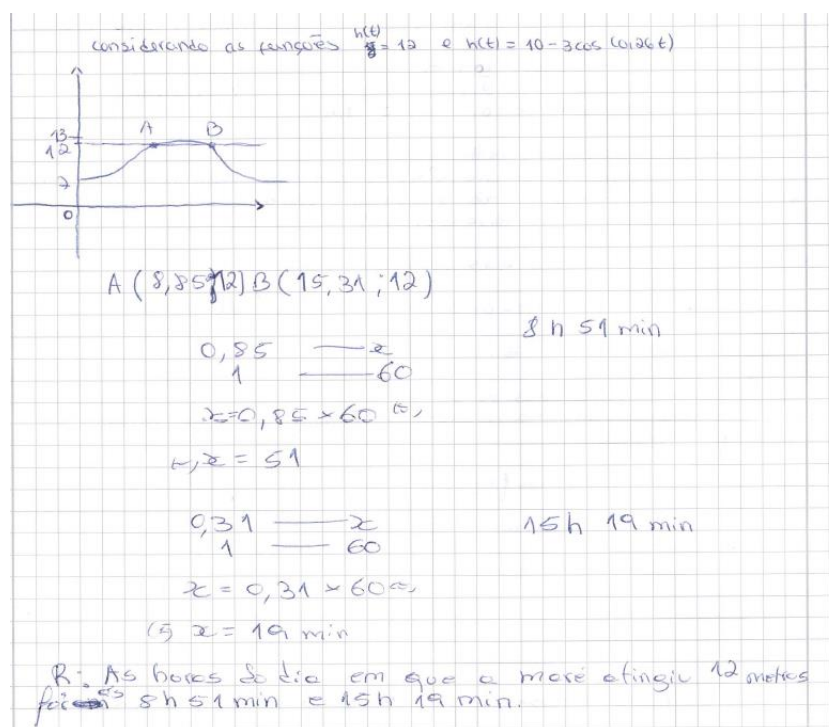 considerando as funções h(t) = 12 e h(t) = 10 - 3cos (0,26t)
A B
13
12
7
0
A (8,85; 12) B (15,31 ; 12)
8 h 51 min
0,85 — x
1 — 60
x = 0,85 × 60 ⇔
⇔ x = 51
0,31 — x
15h 19 min
1 — 60
x = 0,31 × 60 ⇔
⇔ x = 19 min
R: As horas do dia em que a maré atingiu 12 metros
às 8h 51 min e 15h 19 min.